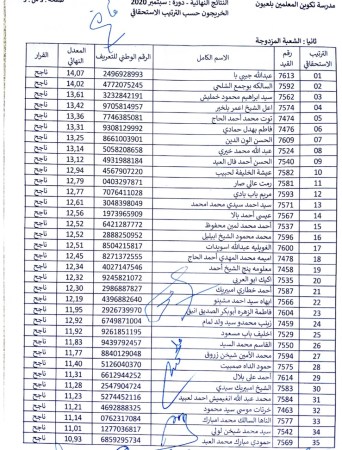 مدرسة تكوين المعلمين بلعيون
النتائج النهائية - دورة : سبتمبر 2020
الخريجون حسب الترتيب الاستحقاقي
ثانيا : الشعبة المزدوجة
الترتيب الاستحقاقي رقم القيد الاسم الكامل الرقم الوطني للتعريف المعدل النهائي القرار
01 7613 عبدالله جيبي با 2496928993 14,07 ناجح
02 7592 السالكه بوجمع الشلحي 4772075245 14,02 ناجح
03 7562 سيد ابراهيم محمود خمليش 3232842191 13,61 ناجح
04 7563 اعل الشيخ اعمر بلخير 9705814957 13,42 ناجح
05 7574 توت محمد أحمد الحاج 7746385081 13,36 ناجح
06 7476 فاطم بهدل حمادي 9308129992 13,31 ناجح
07 7609 الحسن الون الدين 8661003901 13,25 ناجح
08 7524 عبد الله محمد خيري 5058208658 13,14 ناجح
09 7540 الحسن أحمد فال العبد 4931988184 13,12 ناجح
10 7582 عيشة الخليفة لحبيب 4567907220 12,94 ناجح
11 7576 رمت عالي صار 0403297871 12,79 ناجح
12 7593 مريم باب بادي 7076411028 12,77 ناجح
13 7567 سيد احمد سيدي محمد امحمد 3048398049 12,61 ناجح
14 7561 عيسى أحمد بالا 1973965909 12,56 ناجح
15 7537 أحمد محمد لمين محفوظ 6421287772 12,52 ناجح
16 7520 محمد محمود الشيخ ابيليل 2888250952 12,52 ناجح
17 7600 الغويليه عبدالله اسويدات 8504215817 12,51 ناجح
18 7456 اميمه محمد المهدي أحمد الحاج 8271372555 12,45 ناجح
19 7458 معلومه ينج الشيخ أحمد 4027147546 12,34 ناجح
20 7535 اكيك ابو العربي 9245821072 12,32 ناجح
21 7510 أحمد خطاري امبيريك 2986887827 12,30 ناجح
22 7566 ابهاه سيد احمد مشينو 4396882640 12,19 ناجح
23 7606 فاطمة الزهره أبوبكر الصديق البو 2926739970 11,95 ناجح
24 7459 زينب محمدو سيد ولد لمام 6749871004 11,92 ناجح
25 7599 اخليف باب مسعود 9261851195 11,92 ناجح
26 7558 القاسم محمد السيد 9439792457 11,83 ناجح
27 7594 محمد الأمين شيخن زروق 8840129048 11,77 ناجح
28 7542 حمود الداه صمبيت 5126040370 11,40 ناجح
29 7514 أحمد علي بلال 6612944252 11,31 ناجح
30 7583 الشيخ امبيريك سيدي 2547904724 11,28 ناجح
31 7568 محمد عبد الله انغيميش احمد لعبيد 5274452116 11,23 ناجح
32 7463 خرتات موسى سيد محمود 4692888325 11,21 ناجح
33 7577 الناها السالك محمد امبارك 0762317084 11,14 ناجح
34 7542 سيد محمد شيخن لولي 1277036817 11,01 ناجح
35 7569 حمودي مبارك محمد العبد 6859295734 10,93 ناجح